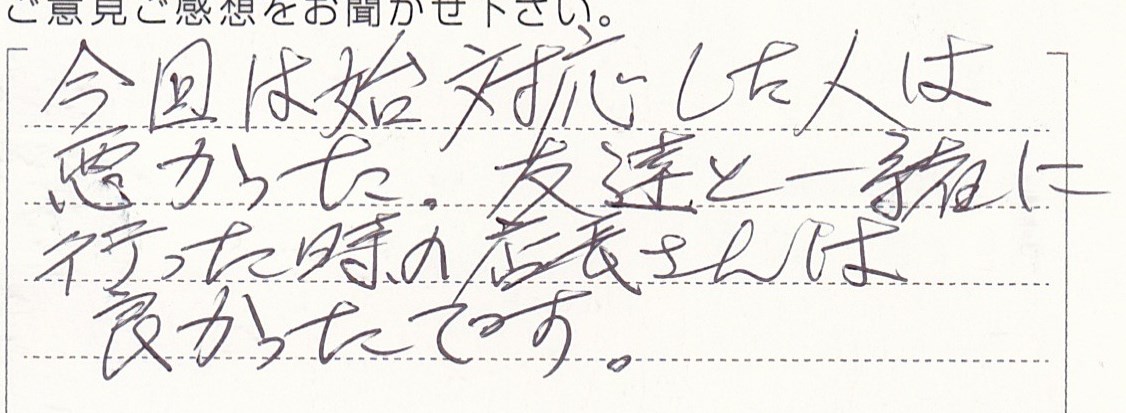 ご意見ご感想をお聞かせ下さい。
今回は始対応した人は
悪かった。友達と一緒に
行った時の店長さんは
良かったです。